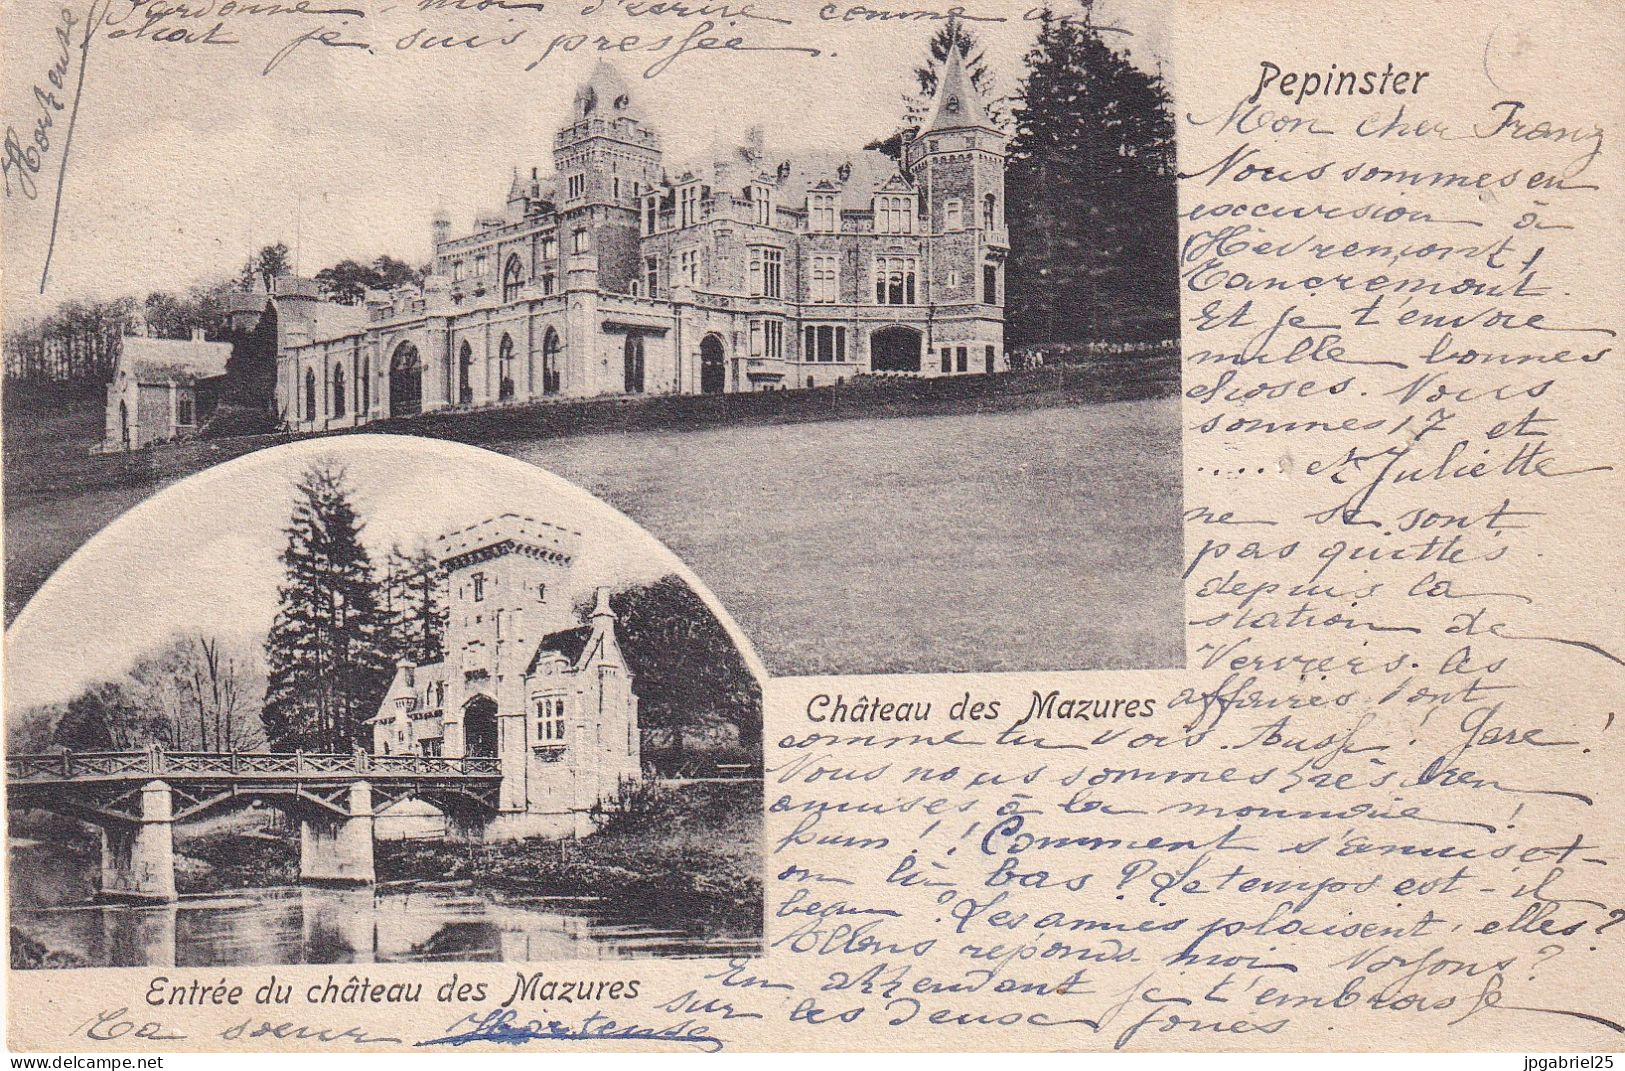 Pardonne-moi d'écrire comme un
chat je suis pressée.
Hortense
Pepinster
Mon cher Franz
Nous sommes en
excursion à
Hèvremont,
Tancremont.
Et je t'envoie
mille bonnes
choses. Nous
sommes 17 et
..... et Juliette
ne se sont
pas quittés
depuis la
station de
Verviers. Les
affaires vont
Château des Mazures
comme tu vois. Aussi! Gare!
Nous nous sommes très bien
amusés à la
pum!! Comment s'amuse-t-
on là bas? Le temps est-il
beau? Les amies plaisent, elles?
Allons réponds moi Voyons?
En attendant je t'embrasse
sur les deux joues.
Entrée du château des Mazures
Ta sœur Hortense
jpgabriel25